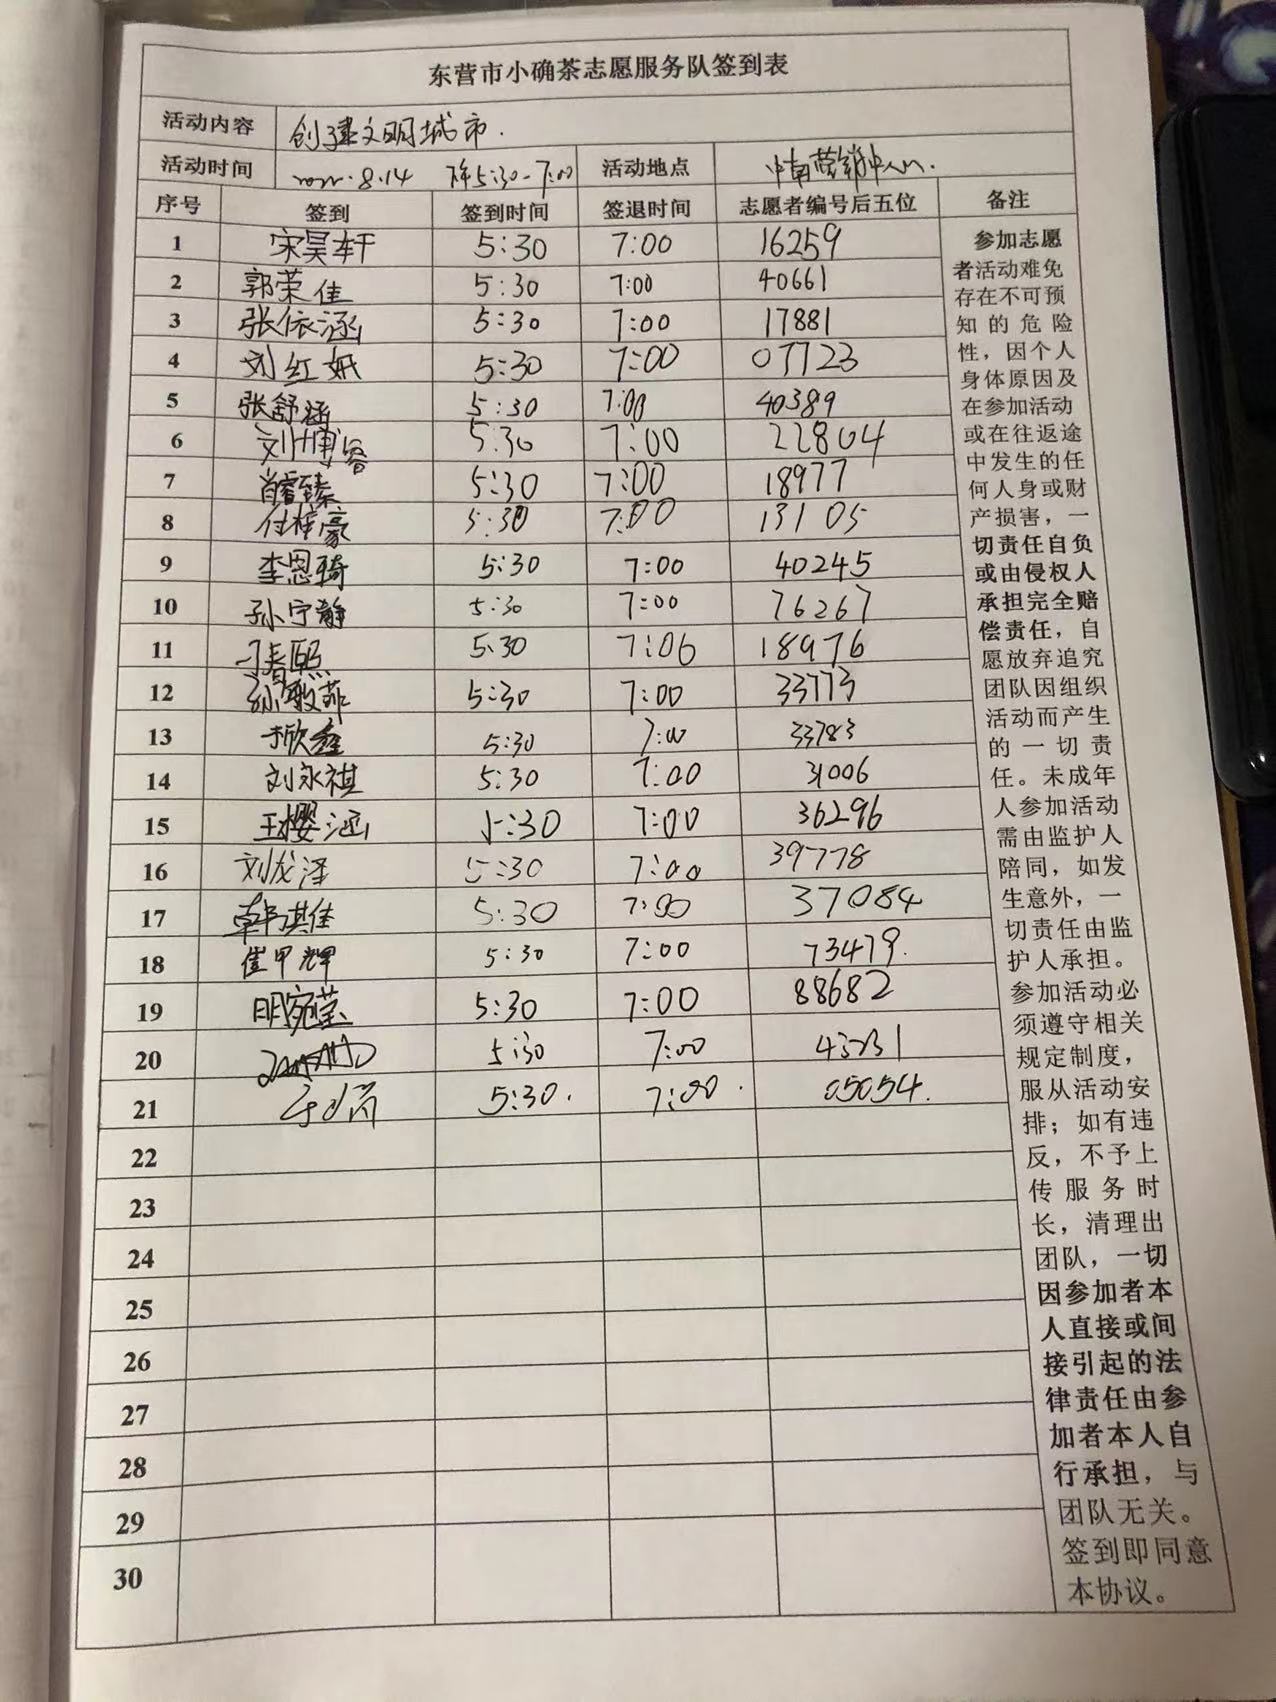 东营市小确茶志愿服务队签到表
活动内容 创建文明城市.
活动时间 2022.8.14 下午5:30-7:00 活动地点 中南营销中心.
序号 签到 签到时间 签退时间 志愿者编号后五位 备注
1 宋昊轩 5:30 7:00 16259
2 郭荣佳 5:30 7:00 40661
3 张依涵 5:30 7:00 17881
4 刘红妍 5:30 7:00 07723
5 张舒涵 5:30 7:00 40389
6 刘博睿 5:30 7:00 22804
7 肖睿臻 5:30 7:00 18977
8 付梓豪 5:30 7:00 13105
9 李恩琦 5:30 7:00 40245
10 孙宁静 5:30 7:00 76267
11 5:30 7:06 18976
12 孙敬菲 5:30 7:00 33773
13 于欣鑫 5:30 7:00 33783
14 刘永祺 5:30 7:00 31006
15 王樱涵 5:30 7:00 36296
16 刘龙泽 5:30 7:00 39778
17 韩淇佳 5:30 7:00 37084
18 崔甲辉 5:30 7:00 73479.
19 明宛莹 5:30 7:00 88682
20 5:30 7:00
21 5:30. 7:00. 05054.
22
23
24
25
26
27
28
29
30
参加志愿
者活动难免
存在不可预
知的危险
性，因个人
身体原因及
在参加活动
或在往返途
中发生的任
何人身或财
产损害，一
切责任自负
或由侵权人
承担完全赔
偿责任，自
愿放弃追究
团队因组织
活动而产生
的一切责
任。未成年
人参加活动
需由监护人
陪同，如发
生意外，一
切责任由监
护人承担。
参加活动必
须遵守相关
规定制度，
服从活动安
排；如有违
反，不予上
传服务时
长，清理出
团队，一切
因参加者本
人直接或间
接引起的法
律责任由参
加者本人自
行承担，与
团队无关。
签到即同意
本协议。